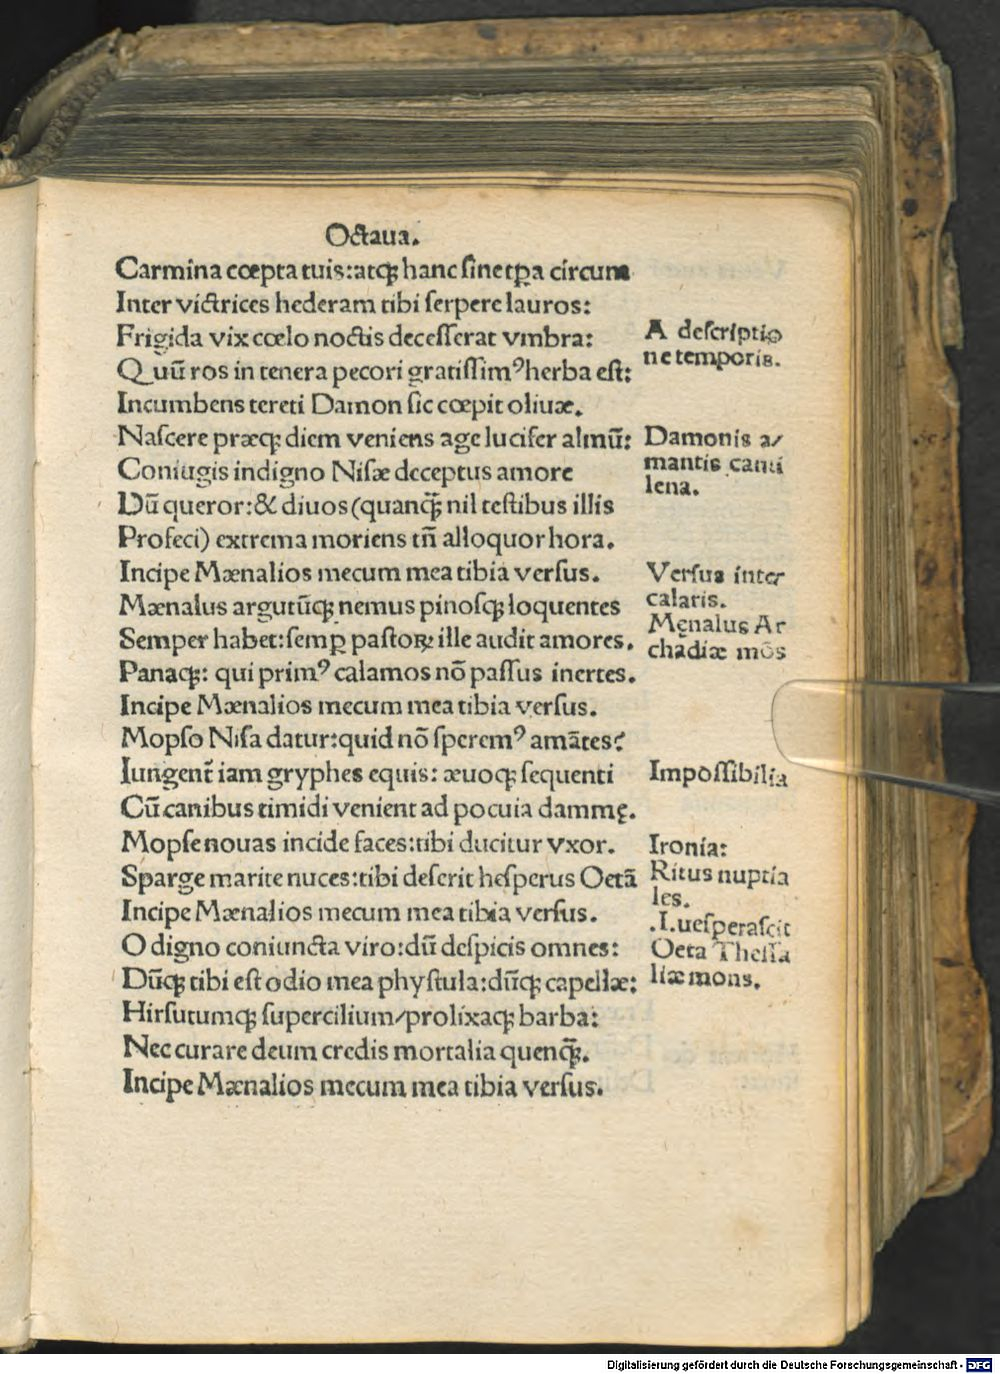 Octaua.
Carmina cœpta tuis:atqꝫ hanc sine tp̱a circum
Inter victrices hederam tibi serpere lauros:
Frigida vix cœlo noctis decesserat vmbra:
Quū ros in tenera pecori gratissimꝰ herba est:
Incumbens tereti Damon sic cœpit oliuæ.
Nascere præqꝫ diem veniens age lucifer almū:
Coniugis indigno Nisæ deceptus amore
Dū queror:& diuos (quanqꝫ̄ nil testibus illis
Profeci) extrema moriens tn̄ alloquor hora.
Incipe Mænalios mecum mea tibia versus.
Mænalus argutūqꝫ nemus pinosqꝫ loquentes
Semper habet:semꝑ pastoꝝ ille audit amores.
Panaqꝫ: qui primꝰ calamos nō passus inertes.
Incipe Mænalios mecum mea tibia versus.
Mopso Nisa datur:quid nō speremꝰ amātes?
Iungent̄ iam gryphes equis: æuoqꝫ sequenti
Cū canibus timidi venient ad pocula dammę.
Mopse nouas incide faces:tibi ducitur vxor.
Sparge marite nuces:tibi deserit hesperus Oetā
Incipe Mænalios mecum mea tibia versus.
O digno coniuncta viro:dū despicis omnes:
Dūqꝫ tibi est odio mea phystula:dūqꝫ capellæ:
Hirsutumqꝫ supercilium/prolixaqꝫ barba:
Nec curare deum credis mortalia quenqꝫ̄.
Incipe Mænalios mecum mea tibia versus.
A descriptio
ne temporis.
Damonis a/
mantis canti
lena.
Versus inter
calaris.
Męnalus Ar
chadiæ mōs
Impossibilia
Ironia:
Ritus nuptia
les.
.I.uesperascit
Oeta Thessa
liæ mons.
Digitalisierung gefördert durch die Deutsche Forschungsgemeinschaft - DFG